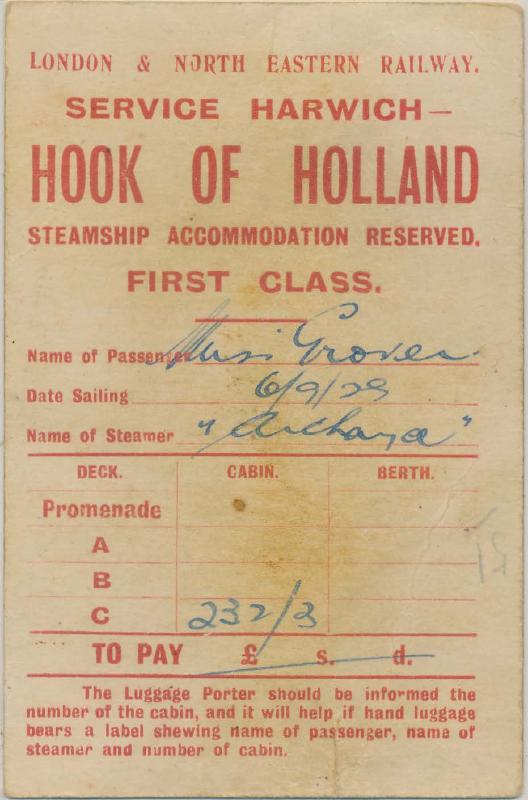 LONDON & NORTH EASTERN RAILWAY.
SERVICE HARWICH—
HOOK OF HOLLAND
STEAMSHIP ACCOMMODATION RESERVED.
FIRST CLASS.
Name of Passenger Miss Grover
Date Sailing 6/9/29
Name of Steamer "Archangel"
DECK. CABIN. BERTH.
Promenade
A
B
C 232/3
TO PAY £ s. d.
The Luggage Porter should be informed the
number of the cabin, and it will help if hand luggage
bears a label shewing name of passenger, name of
steamer and number of cabin.